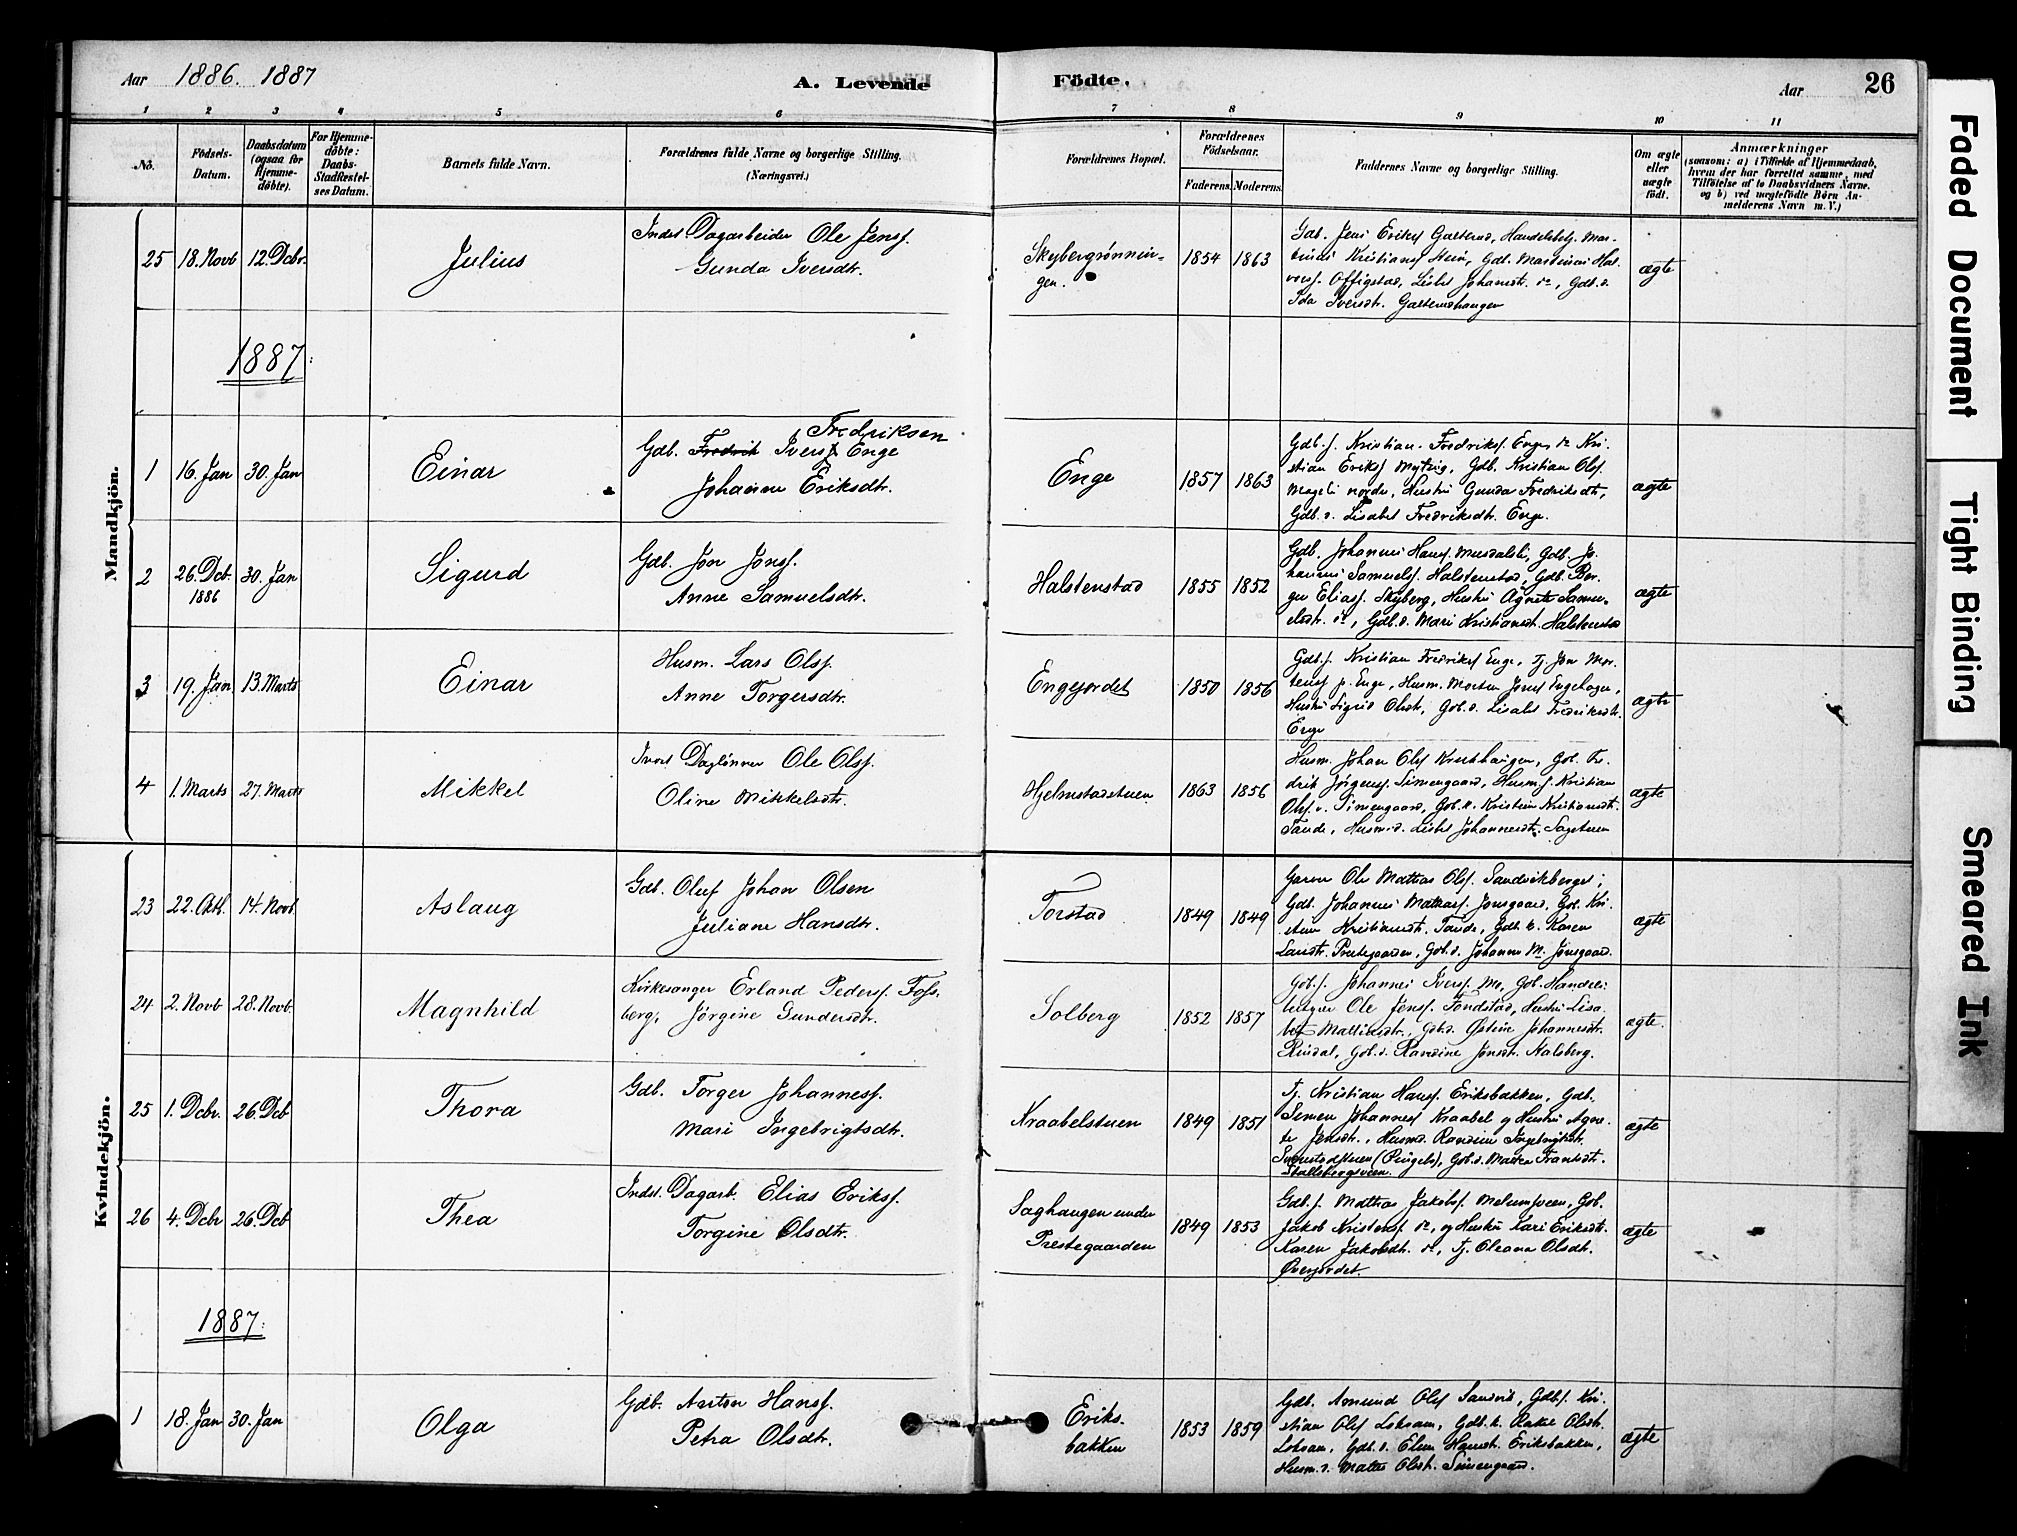 Aar 1886. 1887 A. Levende Födte. Aar 26
1 2 3 4 5 6 7 8 9 10 11
No. Födsels-Datum. Daabsdatum (ogsaa for Hjemme-döbte). For Hjemme-döbte: Daabs-Stadfæstel-ses Datum. Barnets fulde Navn. Forældrenes fulde Navne og borgerlige Stilling. (Næringsvei.) Forældrenes Bopæl. Forældrenes Födselsaar. Faderens. Moderens. Faddernes Navne og borgerlige Stilling. Om ægte eller uægte födt. Anmærkninger
(saasom: a) i Tilfælde af Hjemmedaab,
hvem der har forrettet samme, med
Tilföielse af to Daabsvidners Navne.
og b) ved uægtefödte Börn An-
melderens Navn m. V.)
Mandkjön.
25 18. Novb 12. Dcbr. Julius Inds. Dagarbeider Ole Jensf.
Gunda Iversdtr.
Skybergrønnin-
gen. 1854 1863
Gdb. Jens Eriksf Galterud, Handelsbetj. Mar-
tinus Kristiansf, Gdb. Martinus Hal-
vorsf. Offigstad, Lisbet Johansdt. do, Gdb.d.
Ida Iversdt. Galterudhaugen
ægte
1887.
1 16. Jan 30. Jan Einar Gdb. Fredrik Iversf Enge Fredriksen
Johanne Eriksdtr.
Enge 1857 1863
Gdb.s. Kristian Fredriksf. Enge, do Kri-
stian Eriksf Myhrig, Gdb. Kristian Olsf.
Mageli nordre, Hustru Gunda Fredriksdt,
Gdb.d. Lisabet Fredriksdtr. Enge.
ægte
2 26. Dcb. 1886 30. Jan Sigurd Gdb. Jon Jonsf.
Anne Samuelsdtr.
Halstenstad 1855 1852
Gdb. Johannes Hansf. Musdalsli, Gdb. Jo-
hannes Samuelsf. Halstenstad, Gdb. Bør-
ge Eliasf. Skyberg, Hustru Agnete Samu-
elsdt. do, Gdb.d. Mari Kristiansdt. Halstenstad
ægte
3 19. Jan 13. Marts Einar Husm. Lars Olsf.
Anne Torgersdtr.
Engejordet 1850 1856
Gdb.s. Kristian Fredriksf Enge, Tj. Jon Mor-
tensf p. Enge, Husm. Morten Jonsf Engehagen,
Hustru Sigrid Olsdt, Gdb.d. Lisabet Fredriksdt.
Enge
ægte
4 1. Marts 27. Marts Mikkel Inds. Daglønner Ole Olsf.
Oline Mikkelsdtr.
Hjelmstadstuen 1863 1856
Husm. Johan Olsf, Gdb. Fr-
drik Jørgensf Simengaard, Husm.s. Kristian
Olsf. Simengaard, Gdb.k. Kristine Kristiansdt.
Tande, Husm.d. Lisbet Johannesdt. Sagstuen
ægte
Kvindekjön.
23 22. Okt. 14. Novb. Aslaug Gdb. Oluf Johan Olsen
Juliane Hansdtr.
Torstad 1849 1849
Garver Ole Mathias Olsf. Sandvikberget;
Gdb. Johannes Mathiasf. Jonsgaard, Gdb. Kri-
stian Kristiansdt. Tande, Gdb.k. Karen
Larsdt. Prestegaarden, Gdb.d. Johanne M. Jonsgaard.
ægte
24 2. Novb 28. Novb. Magnhild Kirkesanger Erland Pedersf. Foss-
berg, Jørgine Gundersdtr.
Solberg 1852 1857
Gdb.s. Johannes Iversf. Mo, Gdb. Handels-
betjen Ole Jensf. Fondstad, Hustru Lisa-
bet Mathisdt., Gdb.d. Østine Johannesdt.
Rindal, Gdb.d. Randine Jonsdt. Stalsberg.
ægte.
25 1. Dcbr. 26. Dcb Thora Gdb. Torger Johannesf.
Mari Ingebrigtsdtr.
Kraabelstuen 1849 1851
Tj. Kristian Hansf. Eriksbakken, Gdb.
Simen Johannesf Kraabel og Hustru Agne-
te Jensdt., Husmd. Randine Ingebrigtsdt.
(Ringebu), Gdb.d. Marthe Frantsdt.
Stallsbergsveen.
ægte
26 4. Dcbr 26. Dcb Thea Inds. Dagarb. Elias Eriksf.
Torgine Olsdtr.
Saghaugen under
Prestegaarden 1849 1853
Gdb.s. Mathias Jakobsf. Melumsveen, Gdb.
Jakob Kristensf. do, og Hustru Kari Eriksdt.
Karen Jakobsdt. do, Tj. Oleana Olsdt.
Øverjordet.
ægte
1887.
1 18. Jan 30. Jan Olga Gdb. Anton Hansf.
Petra Olsdtr.
Eriks-
bakken 1853 1859
Gdb. Amund Olsf Sandvik, Gdb.s. Kri-
stian Olsf Loksam, Gdb.k. Rakel Olsdt.
Loksam, Gdb.d. Elen Hansdt. Eriksbakken,
Husm.d. Mathea Olsdt. Simengaard.
ægte
Faded Document
Tight Binding
Smeared Ink